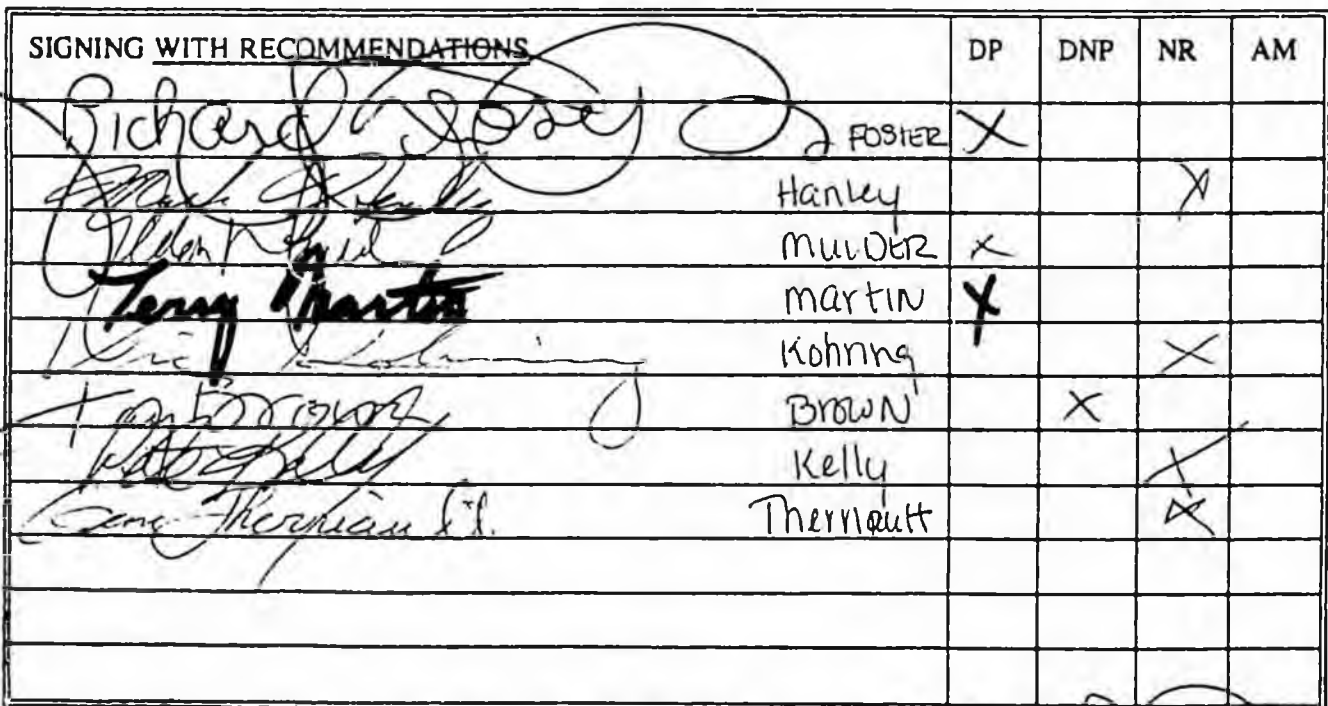 SIGNING WITH RECOMMENDATIONS DP DNP NR AM
Richard Foster FOSTER X
Hanley X
MULDER X
Terry Martin martin X
Vic Kohring Kohring X
Tom Brown Brown X
Pete Kelly Kelly X
Gene Therriault Therriault X